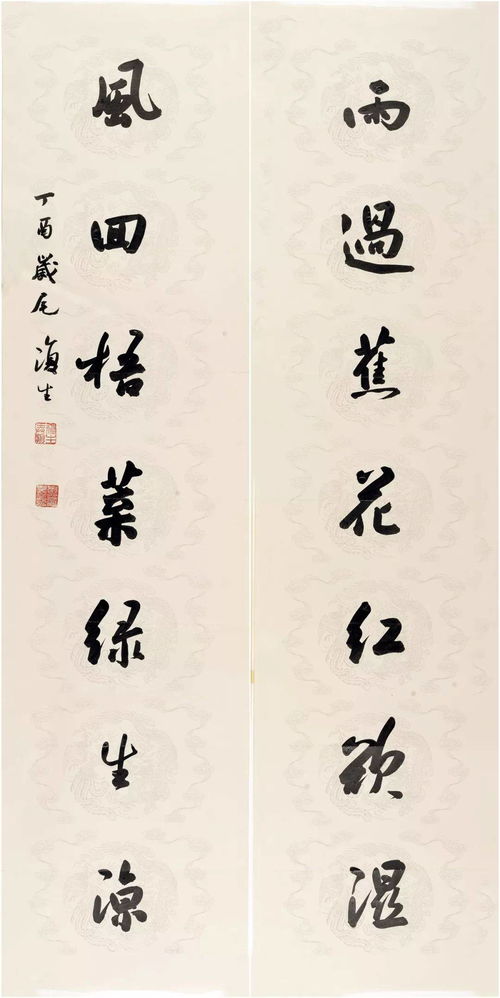 雨過蕉花红欲湿
風回梧葉绿生凉
丁酉歲尾 海生